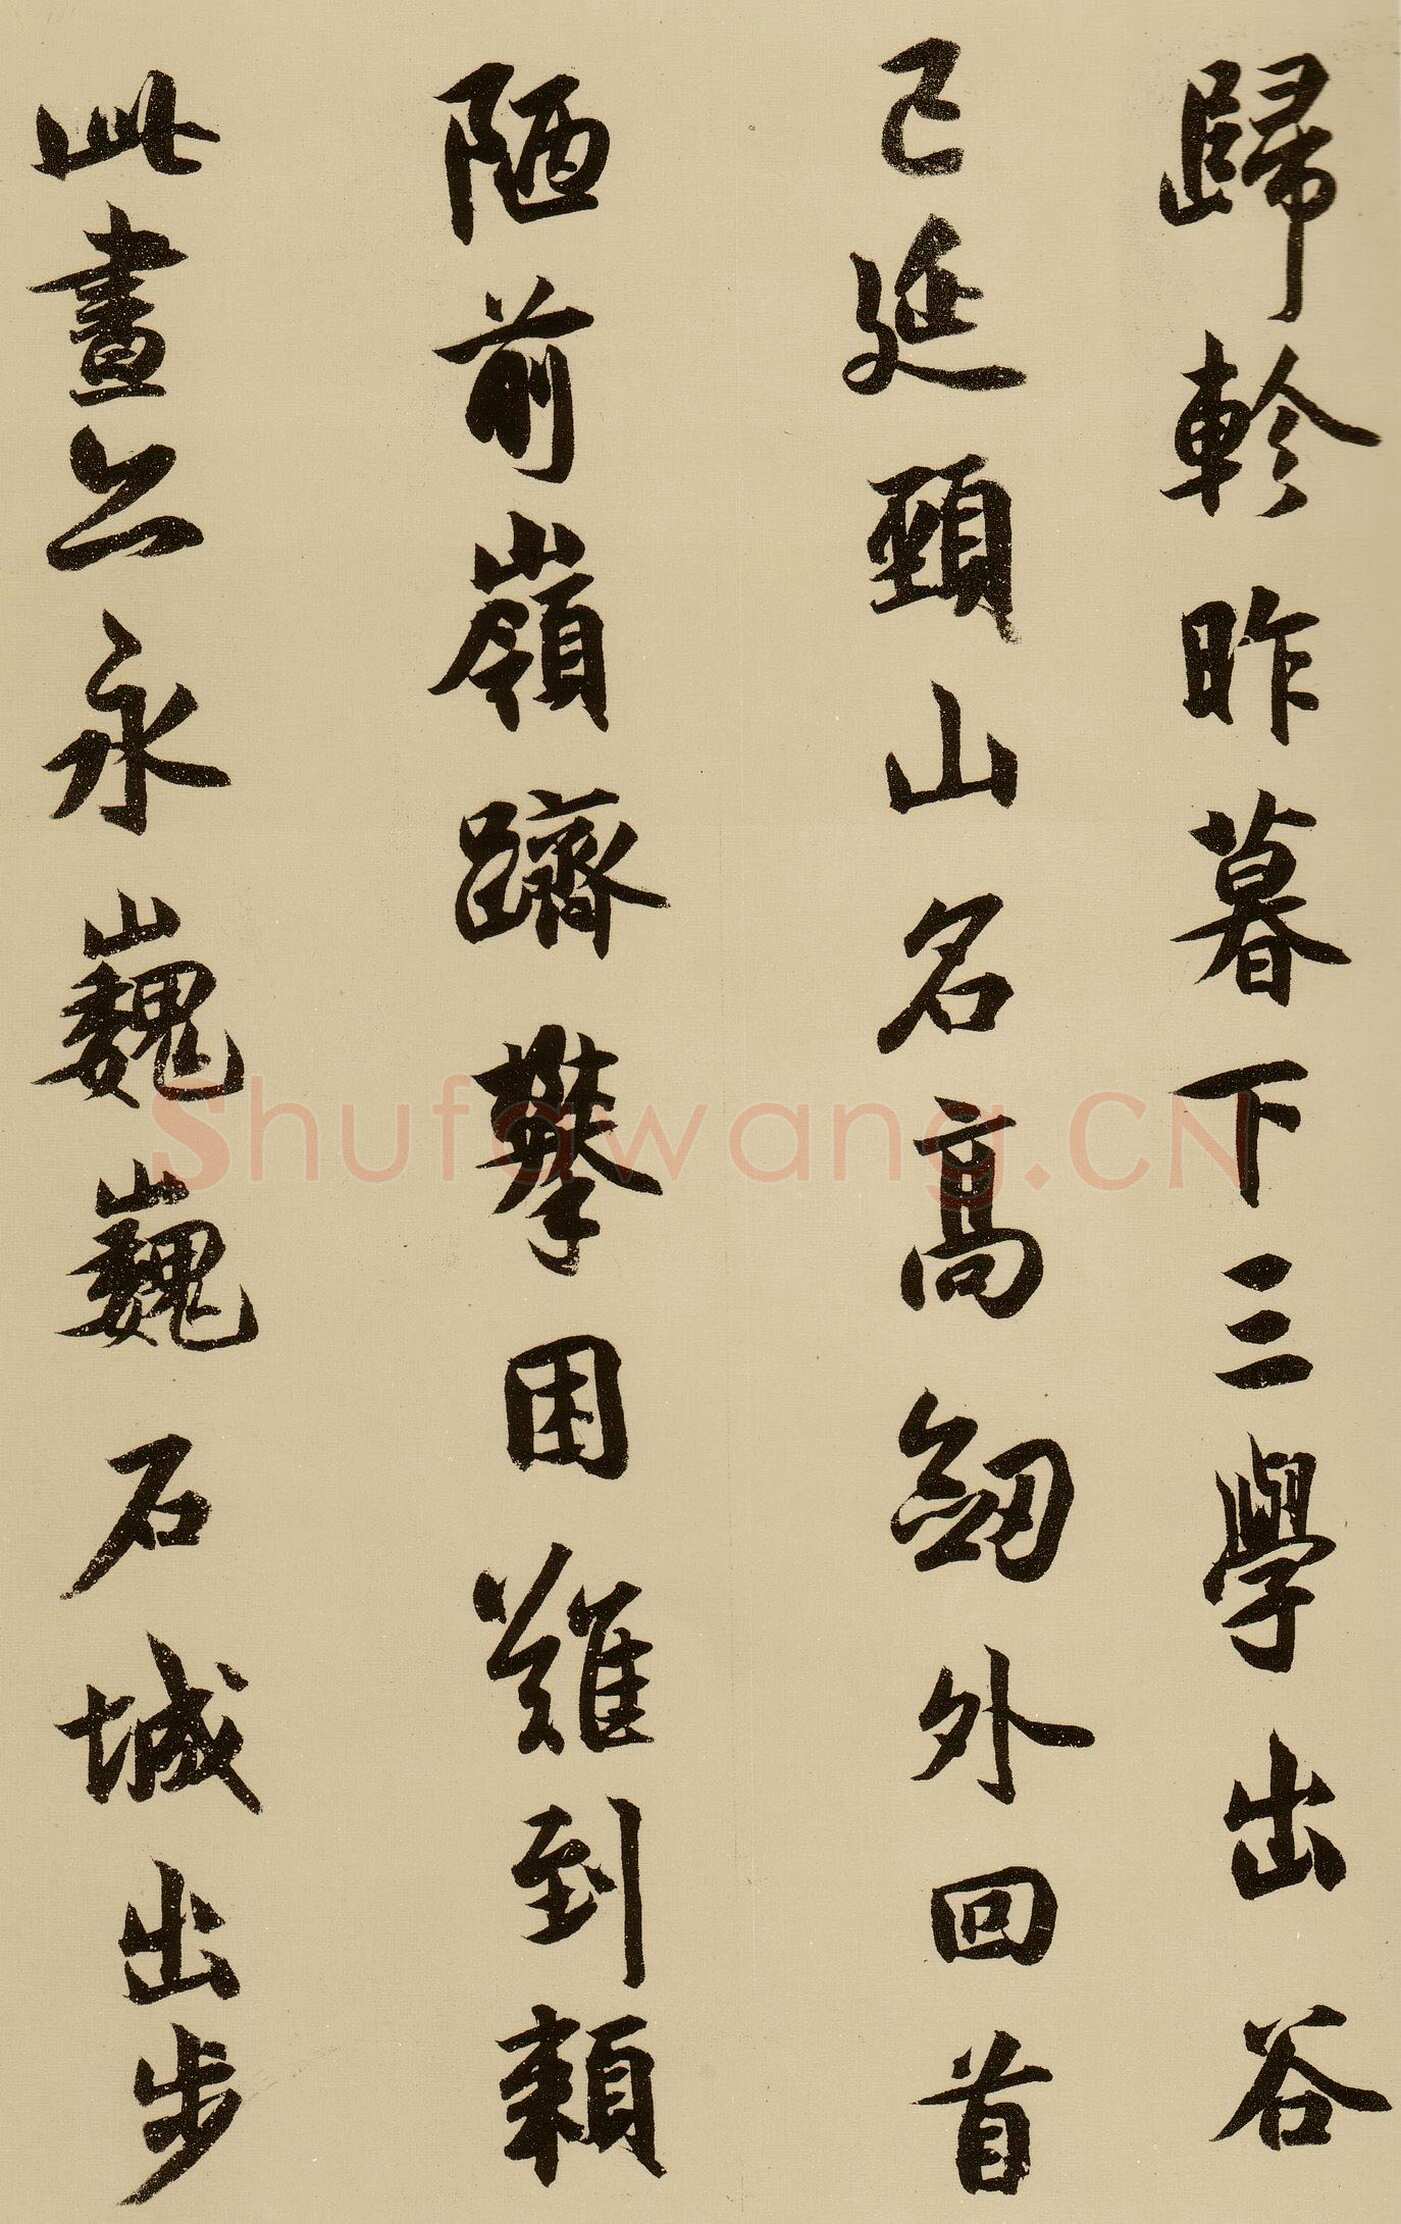 歸軫昨暮下三學出谷
已延頸山名高劒外回首
陋前嶺躋攀困難到頼
此畫亦永巍巍石城出步
Shufawang.CN